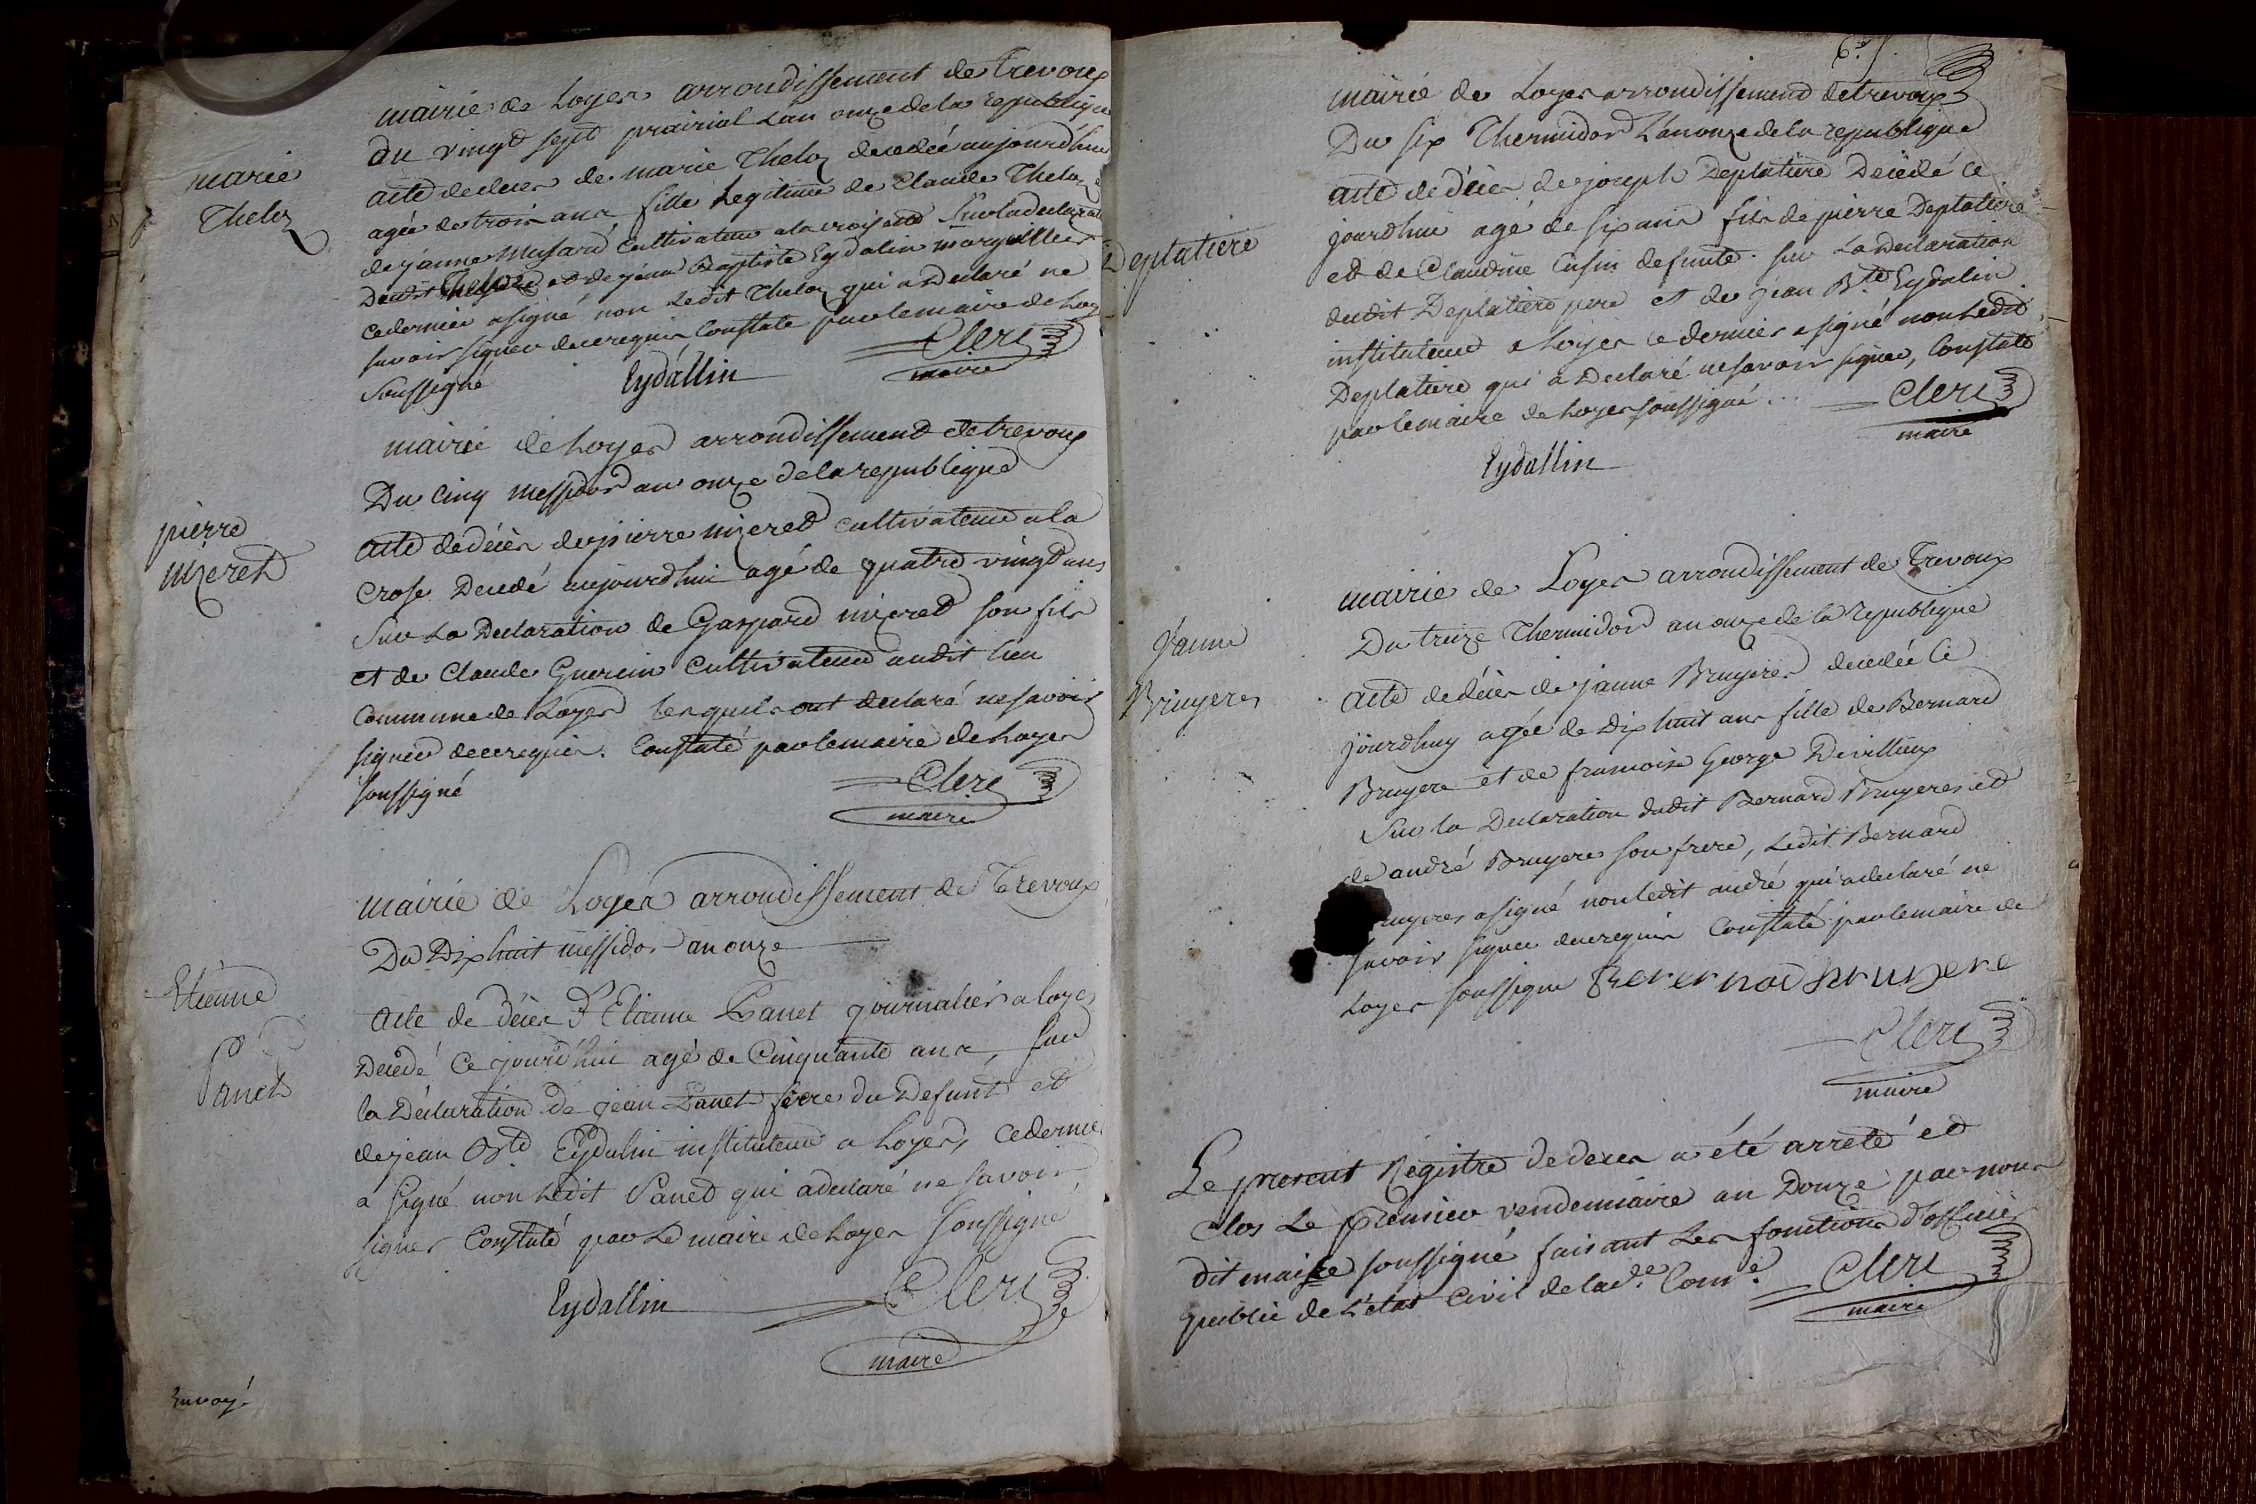 marie
Theloz
mairie de Loyes arrondissement de trevoux
du vingt sept prairial l'an onze de la republique
acte de deces de marie Theloz decedée aujourd'hui
agée de trois ans fille legitime de Claude Theloz
de janne Musard cultivateur a la croisette sur la declarat
dudit Theloz et de jean Baptiste Eydalin marguillier
ce dernier a signé non ledit Theloz qui a declaré ne
savoir signer de ce requis Constaté par le maire de Loy
soussigné Eydallin Clerc
maire
pierre
mizeret
mairie de Loyes arrondissement de trevoux
Du cinq messidor an onze de la republique
acte de décès de pierre mizeret cultivateur a la
crose Decedé aujourdhui agé de quatre vingt ans
sur la Declaration de Gaspard mizeret son fils
et de Claude Guerin cultivateur audit lieu
commune de Loyes lesquels ont declaré ne savoir
signer de ce requis. Constaté par le maire de Loyes
soussigné Clerc
maire
Etienne
Panet
mairie de Loyes arrondissement de Trevoux
Du Dix huit messidor an onze
acte de décès d'Etienne Panet journalier a loyes
Decédé Ce jourd'hui agé de Cinquante ans, sur
la Déclaration de jean Panet frere du Defunt et
de jean Bte Eydalin instituteur a Loyes, ce dernier
a signé non ledit Panet qui a declaré ne savoir
signer Constaté par le maire de Loyes soussigné
Eydallin Clerc
maire
Envoyé
6e
mairie de Loyes arrondissement de trevoux
Du six Thermidor L'an onze de la republique
Deplatiere
acte de décès de joseph Deplatiere Decédé ce
jourdhui agé de six ans fils de pierre Deplatiere
et de Claudine Cusin defunte. sur La Declaration
dudit Deplatiere pere et de jean Bte Eydalin
instituteur a Loyes ce dernier a signé non ledit
Deplatiere qui a Declaré ne savoir signer, Constaté
par le maire de Loyes soussigné... Clerc
maire
Eydallin
mairie de Loyes arrondissement de Trevoux
Du treize Thermidor an onze de la republique
Janne
Bruyeres
acte de décès de janne Bruyeres decedée Ce
jourdhuy agée de Dix huit ans fille de Bernard
Bruyere et de francoise George Devillieux
Sur la Declaration dudit Bernard Bruyeres et
de andré Bruyere son frere, Ledit Bernard
ruyeres a signé non ledit andré qui a declaré ne
savoir signer de ce requis Constaté par le maire de
Loyes soussigné Berernad bruyere
Clerc
maire
Le present Registre de deces a été arrêté et
clos Le premier vendemiaire an Douze par nous
dit maire soussigné faisant Les fonctions d'officier
public de L'etat Civil de lade Come. Clerc
maire